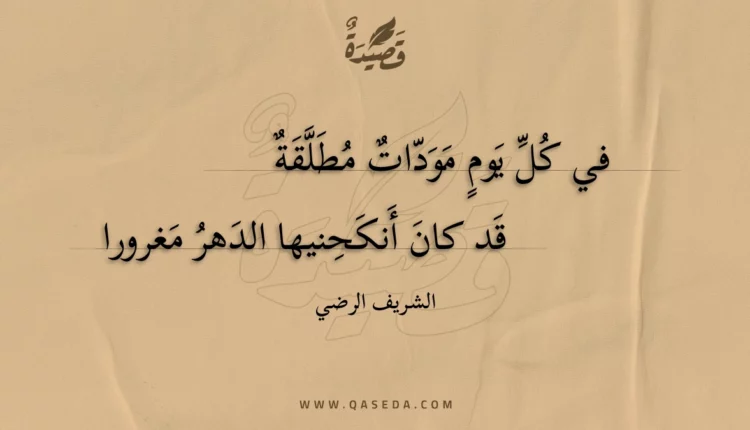 قَصِيْدَةٌ
في كُلِّ يَومٍ مَوَدّاتٌ مُطَلَّقَةٌ
قَد كانَ أَنكَحَنيها الدَهرُ مَغرورا
الشريف الرضي
WWW.QASEDA.COM